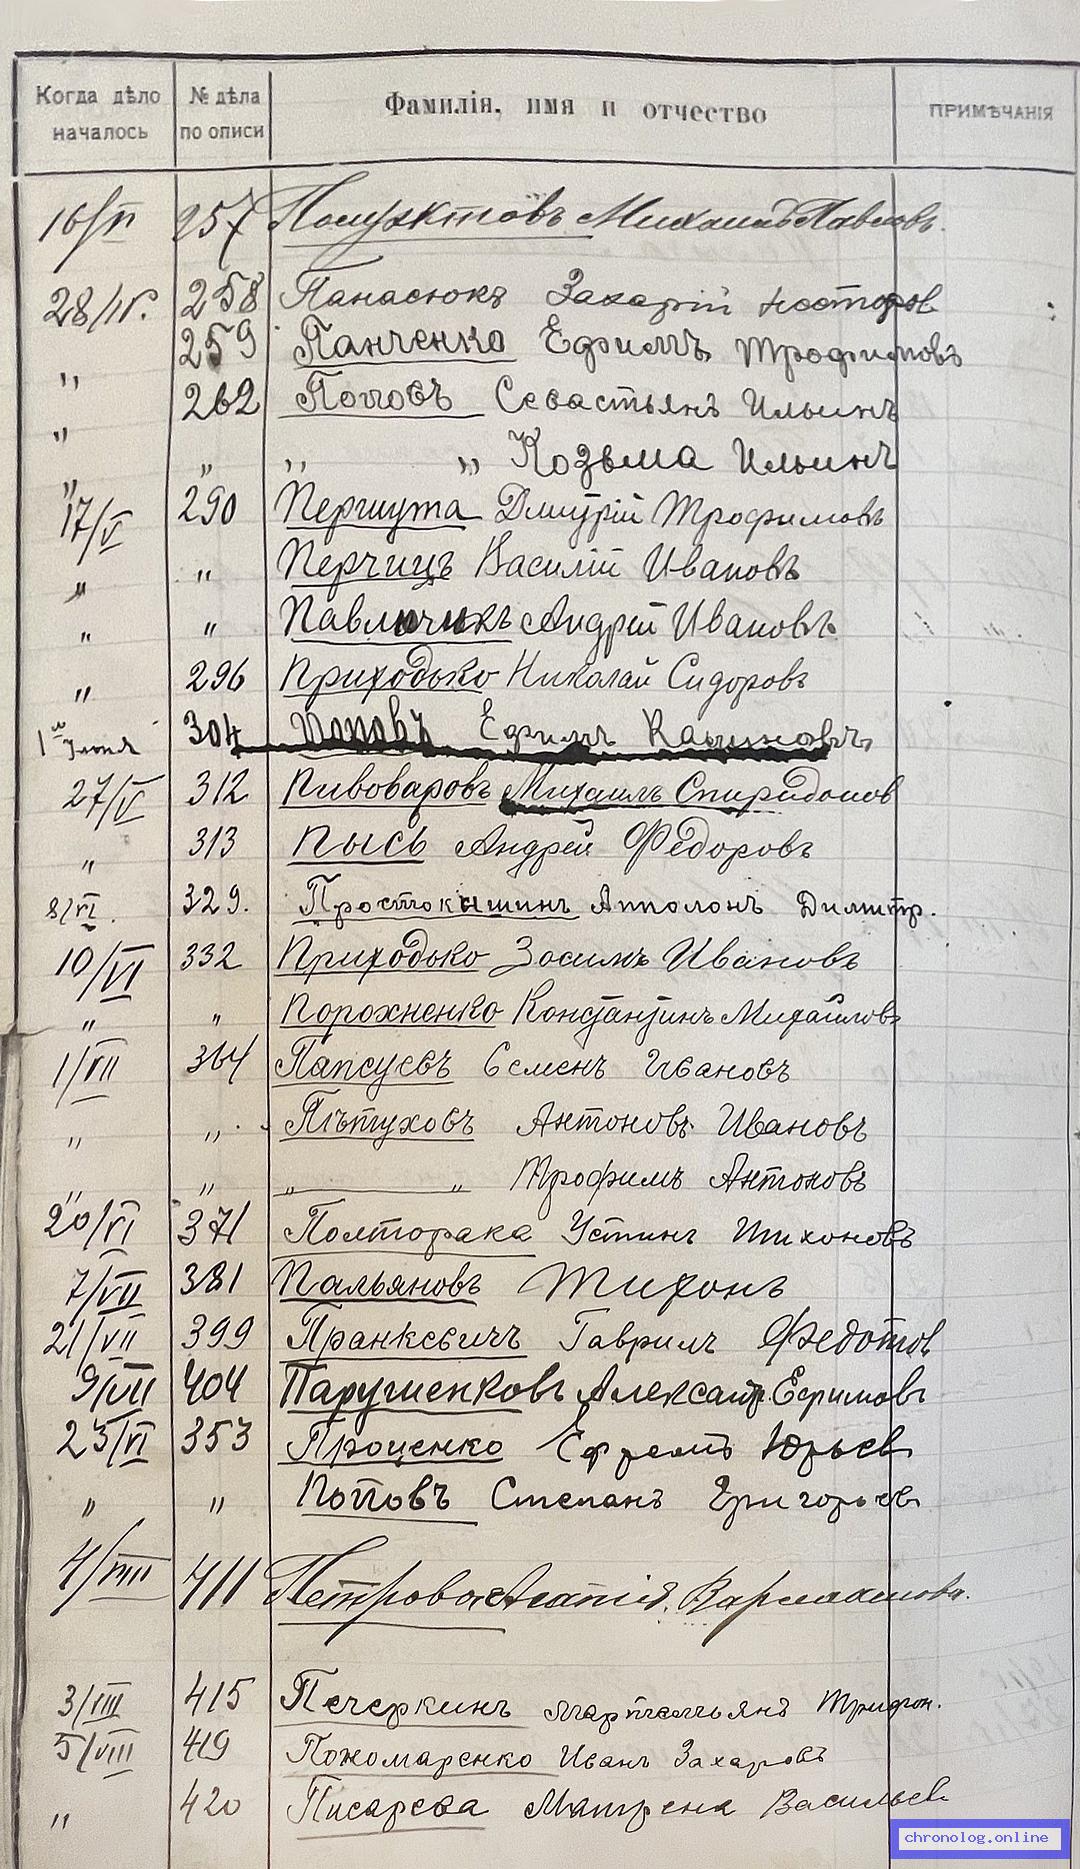 Когда дѣло началось
№ дѣла по описи
Фамилія, имя и отчество
ПРИМѢЧАНІЯ
16/VI 257 Полуэктовъ Михаилъ Павловъ.
28/IV. 258 Панасюкъ Захарій Нестеров
" 259 Панченко Ефимъ Трофимовъ
" 262 Поповъ Севастьянъ Ильинъ
" " " " Козьма Ильинъ
17/V 290 Першута Дмитрій Трофимовъ
" " Перчицъ Василій Ивановъ
" " Павлючикъ Андрей Ивановъ
" 296 Приходько Николай Сидоровъ
1го Іюня 304 Поповъ Ефимъ
27/V 312 Пивоваровъ Михаилъ Спиридонов
" 313 Пысь Андрей Федоровъ
8/VI. 329. Простокишинъ Апполонъ Димитр.
10/VI 332 Приходько Зосимъ Ивановъ
" " Порохненко Константинъ Михайловъ
1/VII 364 Папсуевъ Семенъ Ивановъ
" " Пѣтуховъ Антоновъ Ивановъ
" " " " Трофимъ Антоновъ
20/VI 371 Полторака Устинъ Тихоновъ
7/VII 381 Пальяновъ Тихонъ
21/VII 399 Пранкевичъ Гаврилъ Федотов
9/VII 404 Парушенковъ Александр. Ефимовъ
23/VI 353 Проценко Ефремъ Юрьев
" " Поповъ Степанъ Григорьев
4/VIII 411 Петрова Агапія Варлаамова.
3/VIII 415 Печеркинъ Мартемьянъ Трифон.
5/VIII 419 Пономаренко Иванъ Захаровъ
" 420 Писарева Матрена Васильев
chronolog.online